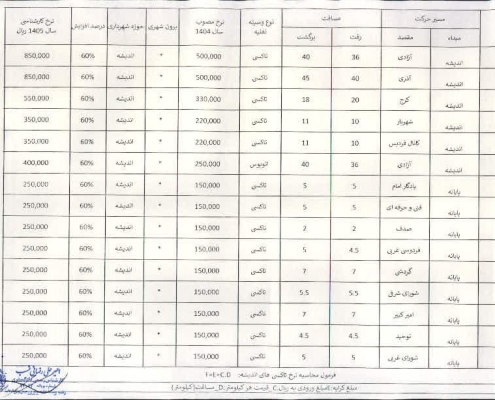 مسیر حرکت مسافت نوع وسیله نقلیه نرخ مصوب سال 1404 برون شهری حوزه شهرداری درصد افزایش نرخ کارشناسی سال 1405 ریال
مبداء مقصد رفت برگشت
اندیشه آزادی 36 40 تاکسی 500,000 * اندیشه 60% 850,000
اندیشه آذری 40 45 تاکسی 500,000 * اندیشه 60% 850,000
اندیشه کرج 20 18 تاکسی 330,000 * اندیشه 60% 550,000
اندیشه شهریار 10 11 تاکسی 220,000 * اندیشه 60% 350,000
اندیشه کانال فردیس 10 11 تاکسی 220,000 * اندیشه 60% 350,000
اندیشه آزادی 36 40 اتوبوس 250,000 * اندیشه 60% 400,000
پایانه یادگار امام 5 5 تاکسی 150,000 * اندیشه 60% 250,000
پایانه فنی و حرفه ای 5 5 تاکسی 150,000 * اندیشه 60% 250,000
پایانه صدف 2 2 تاکسی 150,000 * اندیشه 60% 250,000
پایانه فردوسی غربی 4.5 5 تاکسی 150,000 * اندیشه 60% 250,000
پایانه گردشی 7 7 تاکسی 150,000 * اندیشه 60% 250,000
پایانه شورای شرقی 5.5 5.5 تاکسی 150,000 * اندیشه 60% 250,000
پایانه امیر کبیر 7 7 تاکسی 150,000 * اندیشه 60% 250,000
پایانه توحید 4.5 4.5 تاکسی 150,000 * اندیشه 60% 250,000
پایانه شورای غربی 5 5 تاکسی 150,000 * اندیشه 60% 250,000
فرمول محاسبه نرخ تاکسی های اندیشه:
مبلغ کرایه: مبلغ ورودی به ریال C_قیمت هر کیلومتر D_مسافت(کیلومتر)